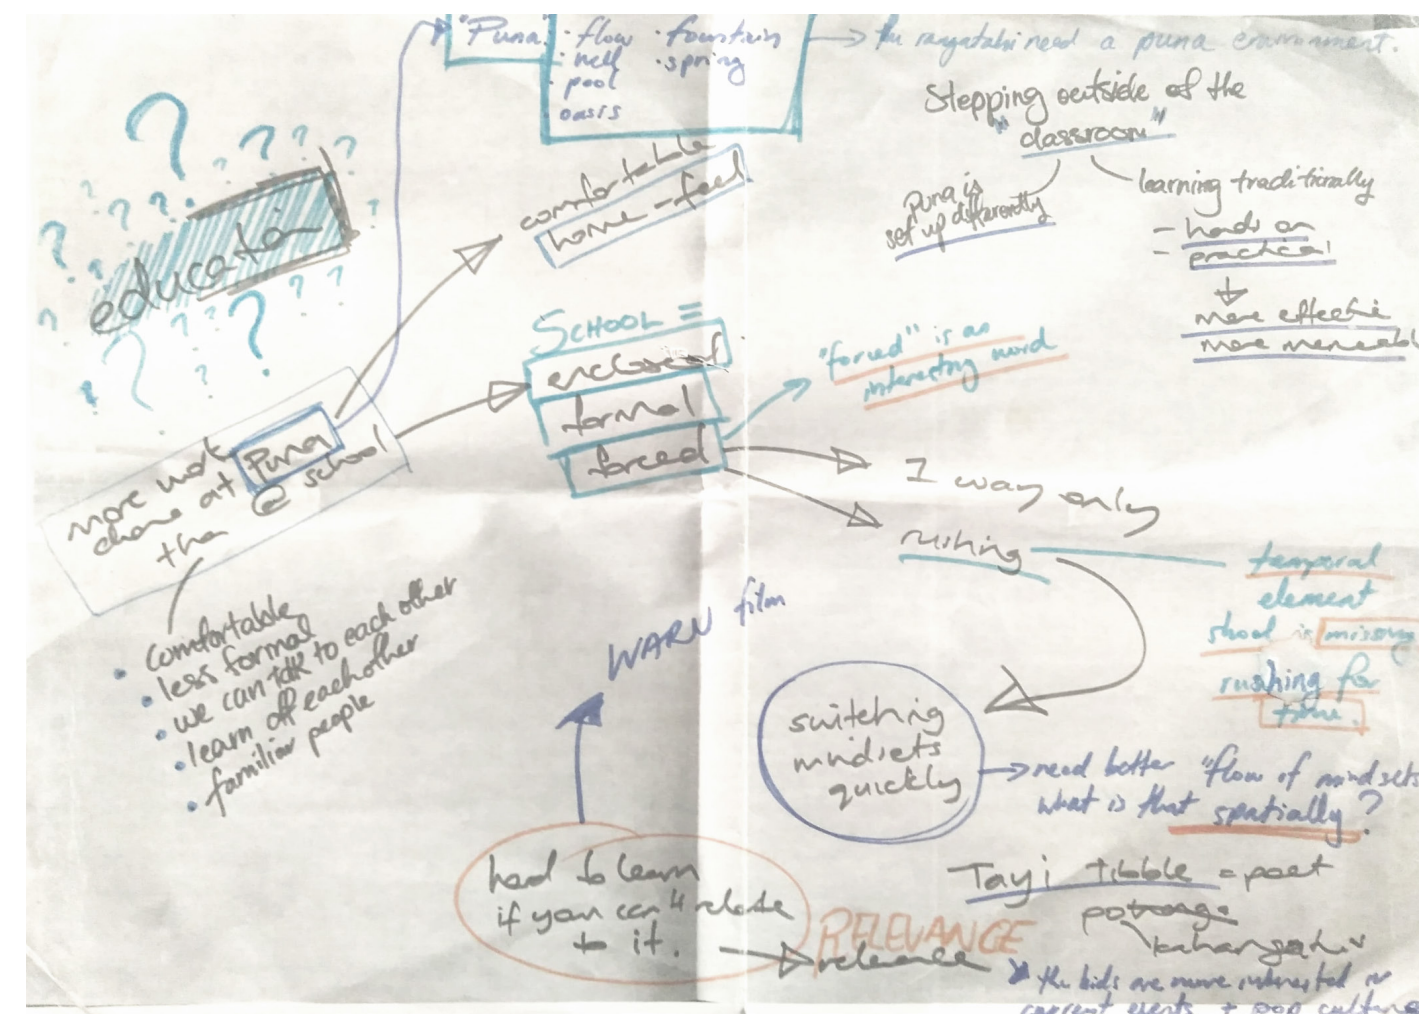 "Puna"
· flow
· well
· pool
oasis
· fountain
· spring
the rangatahi need a puna environment.
Stepping outside of the
"classroom"
Puna is
set up differently
learning traditionally
- hands on
- practical
more effective
more memorabl
comfortable
home-feel
education
? ? ? ? ? ? ? ? ? ? ? ? ? ? ? ? ? ? ? ?
SCHOOL =
enclosed
formal
forced
"forced" is an
interesting word
1 way only
rushing
temporal
element
shool is missing
rushing for
time.
more work
done at Puna
than @ school
· comfortable
· less formal
· we can talk to each other
· learn off eachother
· familiar people
WARU film
switching
mindsets
quickly
need better "flow of mindsets
what is that spatially?
hard to learn
if you can't relate
to it.
RELEVANCE
relevance
Tayi tibble = poet
the kids are more interested in
current events + pop culture